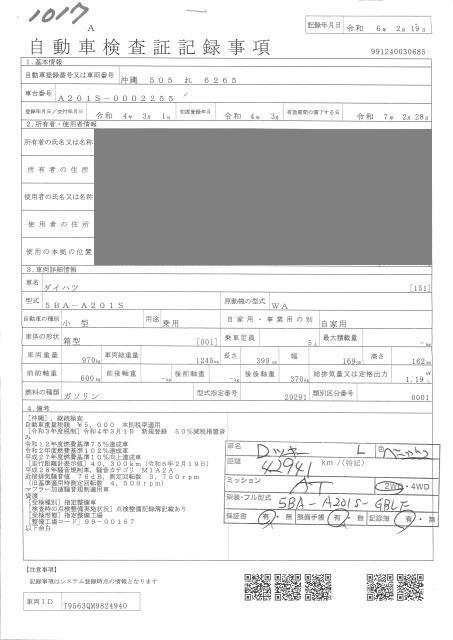 1017
A
記録年月日 令和 6年 2月19日
自動車検査証記録事項
991240030685
1.基本情報
自動車登録番号又は車両番号 沖縄 505 れ 6265
車台番号 A201S-0002255
登録年月日/交付年月日 令和 4年 3月 1日 初度登録年月 令和 4年 3月 有効期間の満了する日 令和 7年 2月28日
2.所有者・使用者情報
所有者の氏名又は名称
所有者の住所
使用者の氏名又は名称
使用者の住所
使用の本拠の位置
3.車両詳細情報
車名 ダイハツ [151]
型式 5BA-A201S 原動機の型式 WA
自動車の種別 小型 用途 乗用 自家用・事業用の別 自家用
車体の形状 箱型 [001] 乗車定員 5人 最大積載量 -kg
車両重量 970kg 車両総重量 1245kg 長さ 399cm 幅 169cm 高さ 162cm
前前軸重 600kg 前後軸重 -kg 後前軸重 -kg 後後軸重 370kg 総排気量又は定格出力 1.19
燃料の種類 ガソリン 型式指定番号 20291 類別区分番号 0001
4.備考
[沖縄],継続検査
自動車重量税額 ¥5,000 本則税率適用
[令和3年度税制]令和4年3月1日 新規登録 50%減税措置済
み
令和12年度燃費基準75%達成車
令和2年度燃費基準102%達成車
平成27年度燃費基準10%向上達成車
[走行距離計表示値]40,300km(令和6年2月19日)
平成28年騒音規制車,騒音カテゴリ M1A2A
近接排気騒音値 76dB,測定回転数 3,750rpm
(旧基準適用時測定回転数 4,500rpm)
マフラー加速騒音規制適用車
[受検種別]指定整備車
[検査時の点検整備実施状況]点検整備記録簿記載あり
[受検形態]指定整備工場
[整備工場コード]99-00167
以下余白
車名 ロッキー L 色
距離 42941 km/(特記)
ミッション AT 2WD・4WD
架装・フル型式 5BA-A201S-GBLF
保証書 有・無 整備手帳 有・無 記録簿 有・無
【注意事項】
記録事項はシステム登録時点の情報となります
車両ID T9563QM9824940